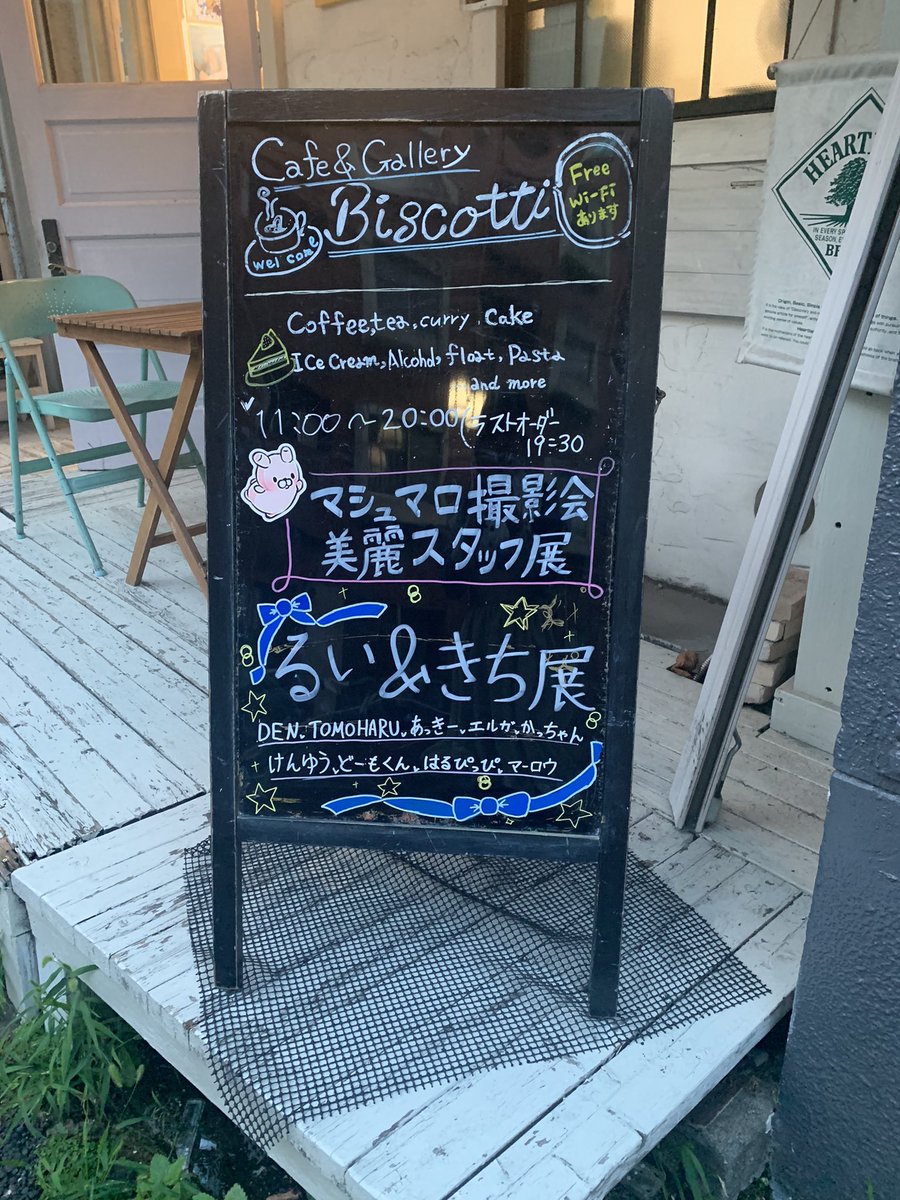 Cafe & Gallery
Biscotti
welcome
Free
Wi-Fi
あります
Coffee, tea, curry, Cake
Ice Cream, Alcohol, float, Pasta
and more
11:00～20:00（ラストオーダー
19:30
マシュマロ撮影会
美麗スタッフ展
るい&きち展
DEN、TOMOHARU、あっきー、エルガ、かっちゃん
けんゆう、どーもくん、はるぴっぴ、マーロウ
HEART
IN EVERY
SEASON,